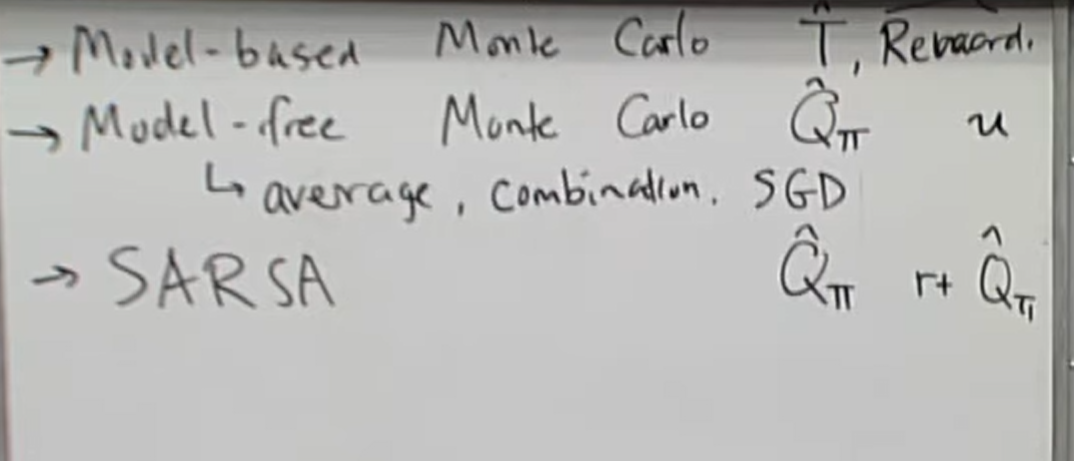 → Model-based Monte Carlo T̂, Reward.
→ Model-free Monte Carlo Q̂π u
↳ average, combination. SGD
→ SARSA Q̂π r+ Q̂π